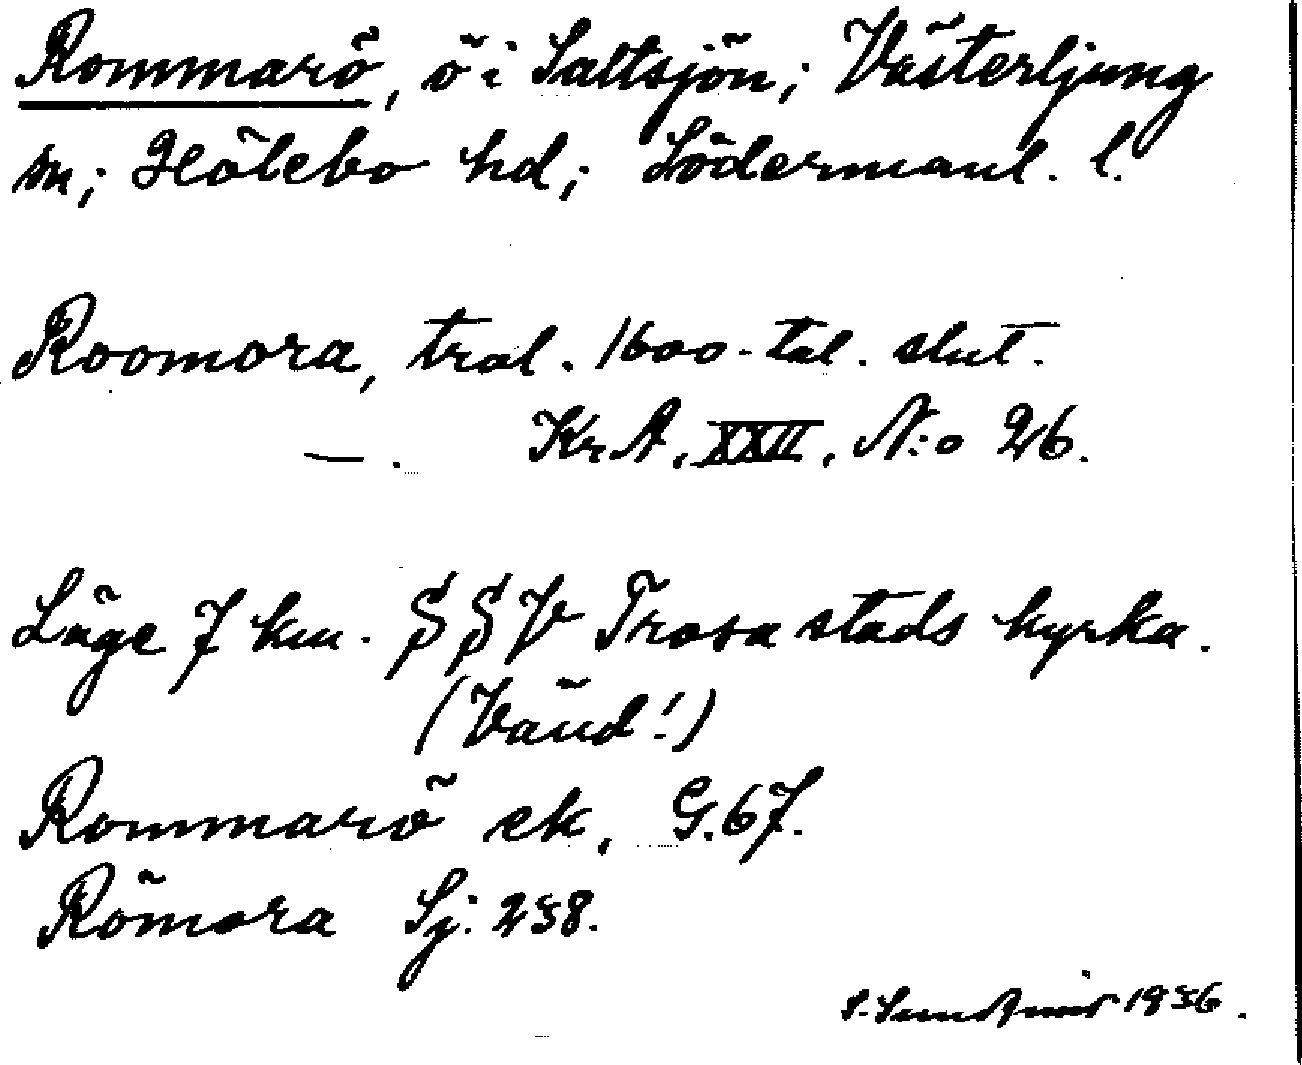 Rommarö, ö i Saltsjön; Västerljung
sn; Hölebo hd; Södermanl. l.
Roomora, trol. 1600-tal. slut.
—. Kr A, XXII, N:o 26.
Läge 7 km. SSV Trosa stads kyrka.
(Vänd!)
Rommarö ek, G. 67.
Römora Sj: 238.
1936.